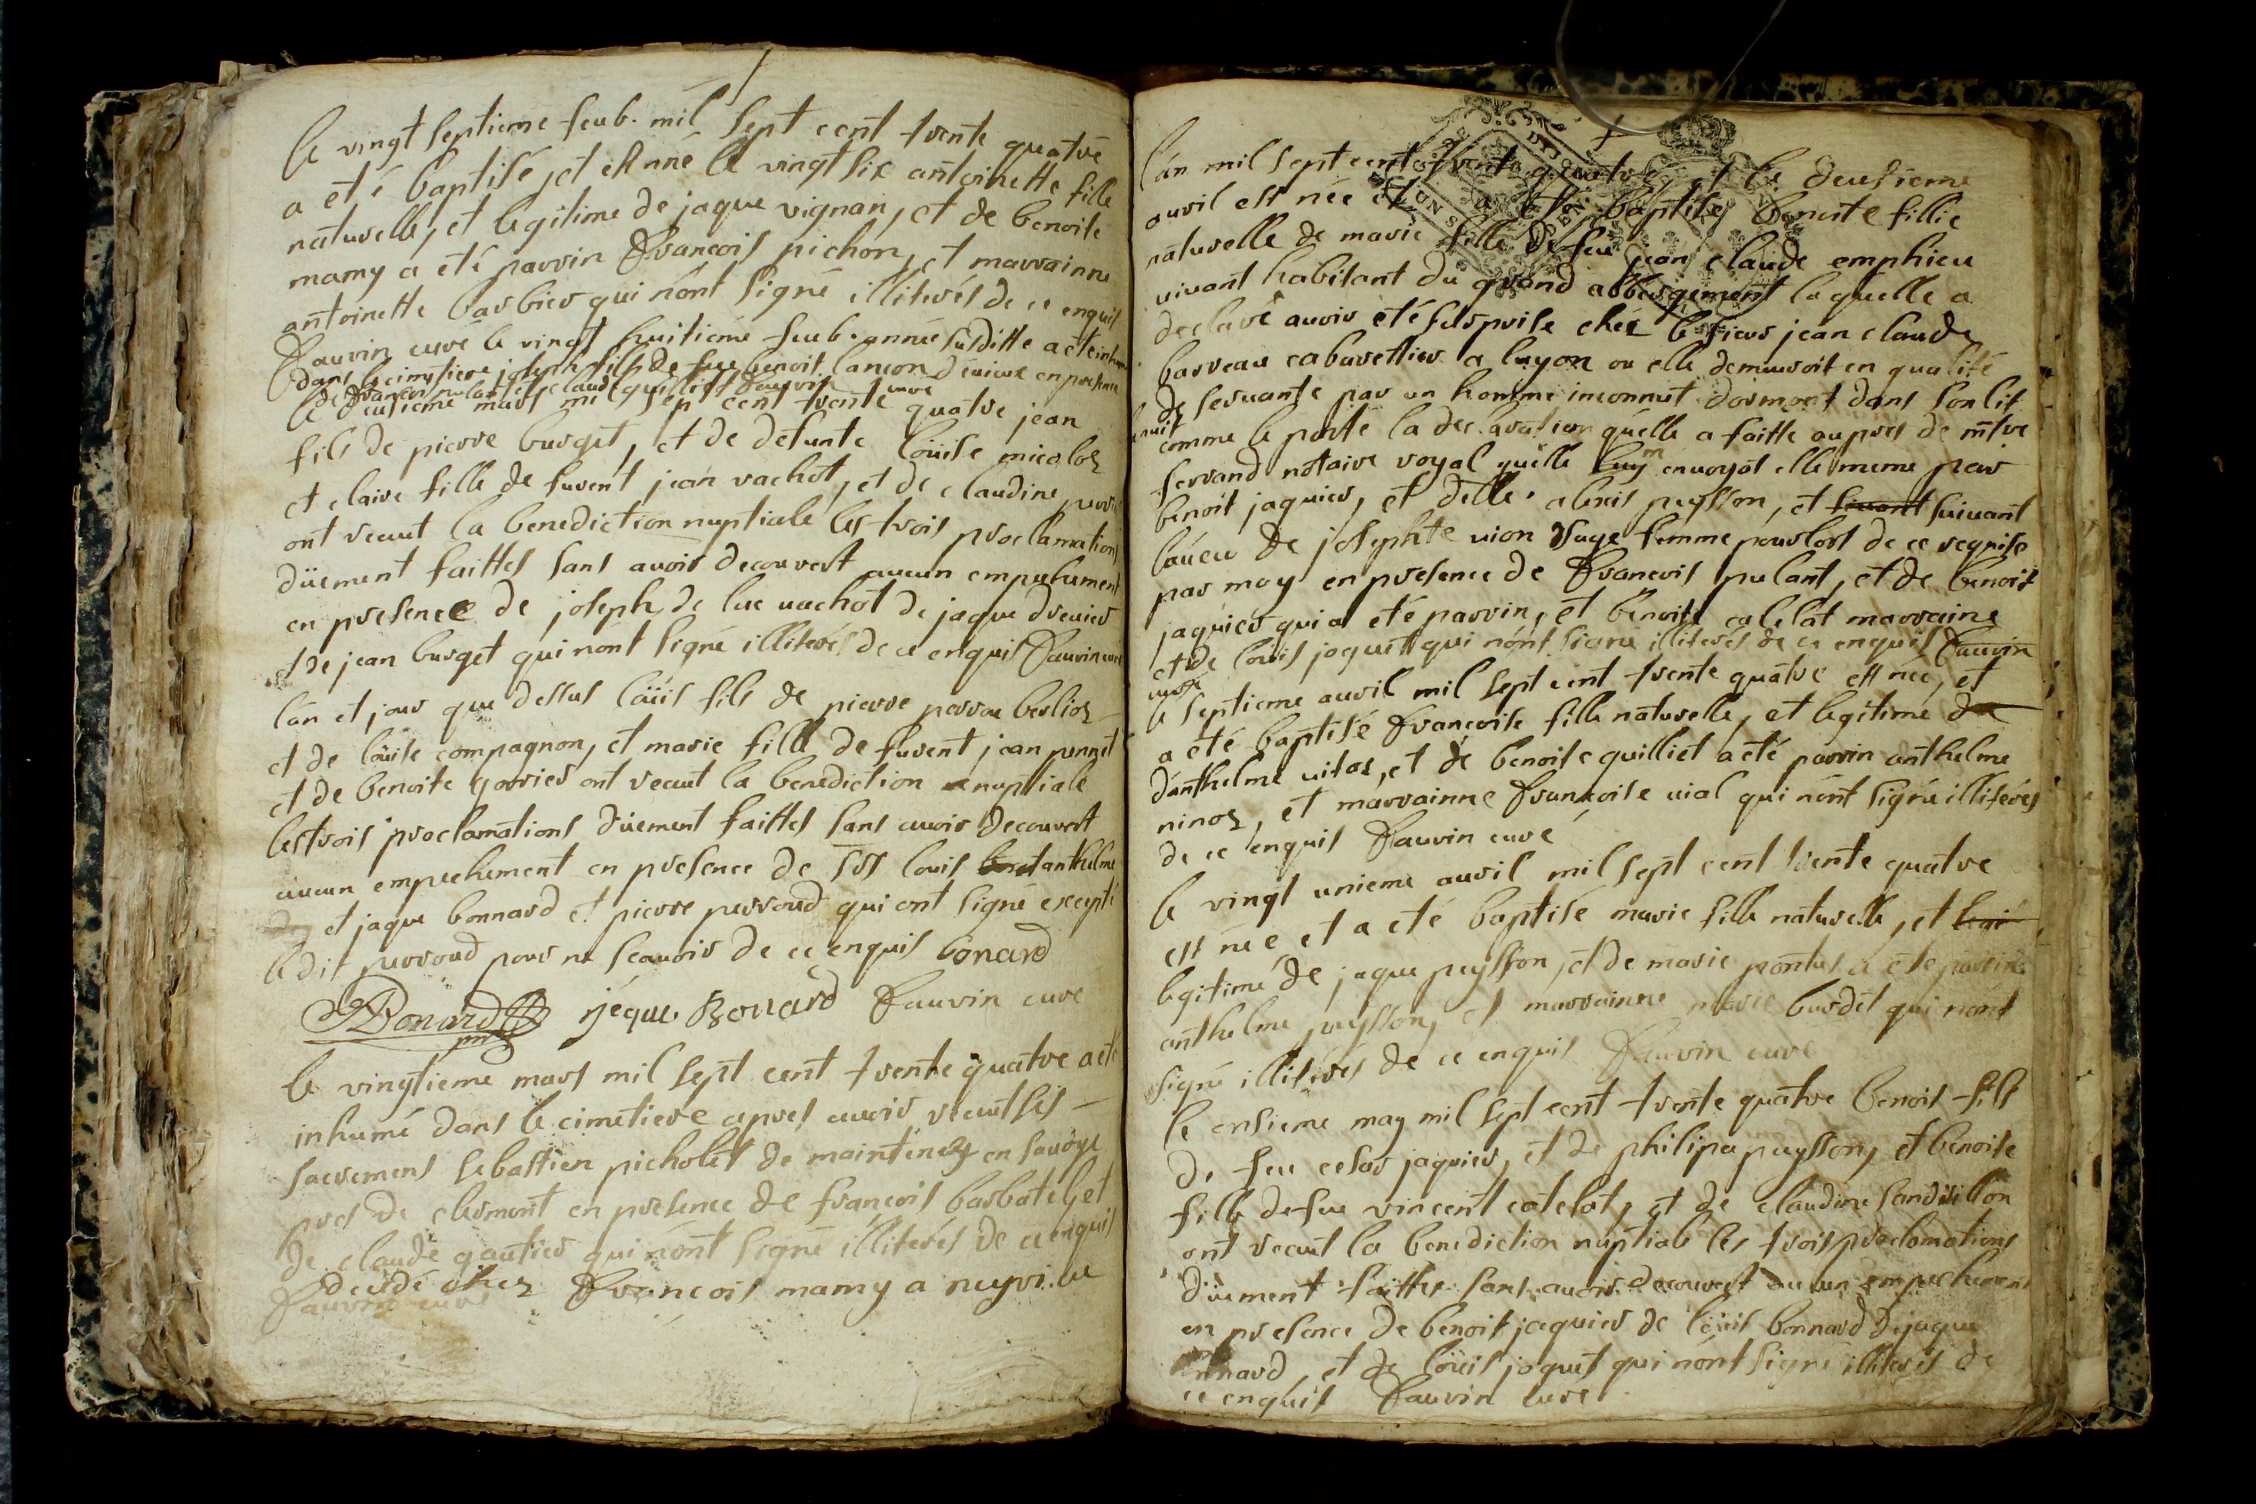 le vingt septieme feub. mil sept cent trente quatre
a eté baptisé, et est nné le vingt six antoinette fille
naturelle, et legitime de jaque vignan, et de benoite
mamy a eté parrin francois pichon, et marrainne
antoinette barbier qui nónt signé illiterés de ce enquis
fauvin curé le vingt huitieme feub. année susditte a eté inhumé
dans le cimetiere joseph fils de feu benoit lancon en presence
de francois pulant et claude quilliet fauvin curé
le deusieme mars mil sept cent trente quatre jean
fils de pierre burget, et de defunte loüise micoloz
et claire fille de furent jean vachot, et de claudine
ont receut la benediction nuptiale les trois proclamations
düement faittes sans avoir decouvert aucun empechement
en presence de joseph de luc vachot de jaque drevier
et de jean burget qui nont signé illiterés de ce enquis fauvin curé
lán et jour que dessus loüis fils de pierre perrou berlioz
et de loüise compagnon, et marie fille de furent jean ponnet
et de benoite gorrier ont receut la benediction nuptiale
les trois proclamations düement faittes sans avoir decouvert
aucun empechement en presence de srs louis anthelme
et jaque bonnard et pierre perroud qui ont signé excepté
le dit perroud pour ne scavoir de ce enquis bonard
Bonard jéque Bonard fauvin curé
le vingtieme mars mil sept cent trente quatre a eté
inhumé dans le cimetiere apres avoir receut les
sacremens sebastien picholet de en savoye
pres de clermont en presence de francois barbotel, et
de claude gautier qui nónt signé illiterés de ce enquis
decédé chez francois mamy a
fauvin curé
lán mil sept cent trente quatre, et le deusieme
avril est née et a eté baptisé benoite fillie
naturelle de marie fille de feu jean claude emphieu
vivant habitant du grand abbergement laquelle a
declaré avoir eté surprise chéz le sieur jean claude
barreau cabarettier a luyon ou elle demeuroit en qualité
de servante par un homme inconnut dormant dans son lit
la nuit
comme le porte la declaration quélle a faitte aupres de mtre
ferrand notaire royal quélle luy envoyat elle meme par
benoit jaquier, et delle. alexis puysson, et suivant
láveu de josephte vion sage femme pour lors de ce requise
par moy en presence de francois pulant, et de benoit
jaquier qui a eté parrin, et benoite catelat marraine
et de loüis joquet qui nónt signé illiterés de ce enquis fauvin
curé
le septieme avril mil sept cent trente quatre est née, et
a eté baptisé francoise fille naturelle, et legitime
dánthelme vitoz, et de benoite quilliet a eté parrin anthelme
ninoz, et marrainne francoise vial qui nónt signé illiterés
de ce enquis fauvin curé
le vingt unieme avril mil sept cent trente quatre
est née et a eté baptisé marie fille naturelle, et
legitime de jaque puysson, et de marie pontus a eté parrin
anthelme puysson, et marrainne marie burdet qui nónt
signé illiterés de ce enquis fauvin curé
le onsieme may mil sept cent trente quatre benoit fils
de feu cesar jaquier, et de philipa puysson, et benoite
fille de feu vincent catelat, et de claudine sandrillon
ont receut la benediction nuptiale les trois proclamations
düement faittes sans avoir decouvert aucun empechement
en presence de benoit jaquier de loüis bonnard de jaque
bonnard, et de loüis joquet qui nónt signé illiterés de
ce enquis fauvin curé